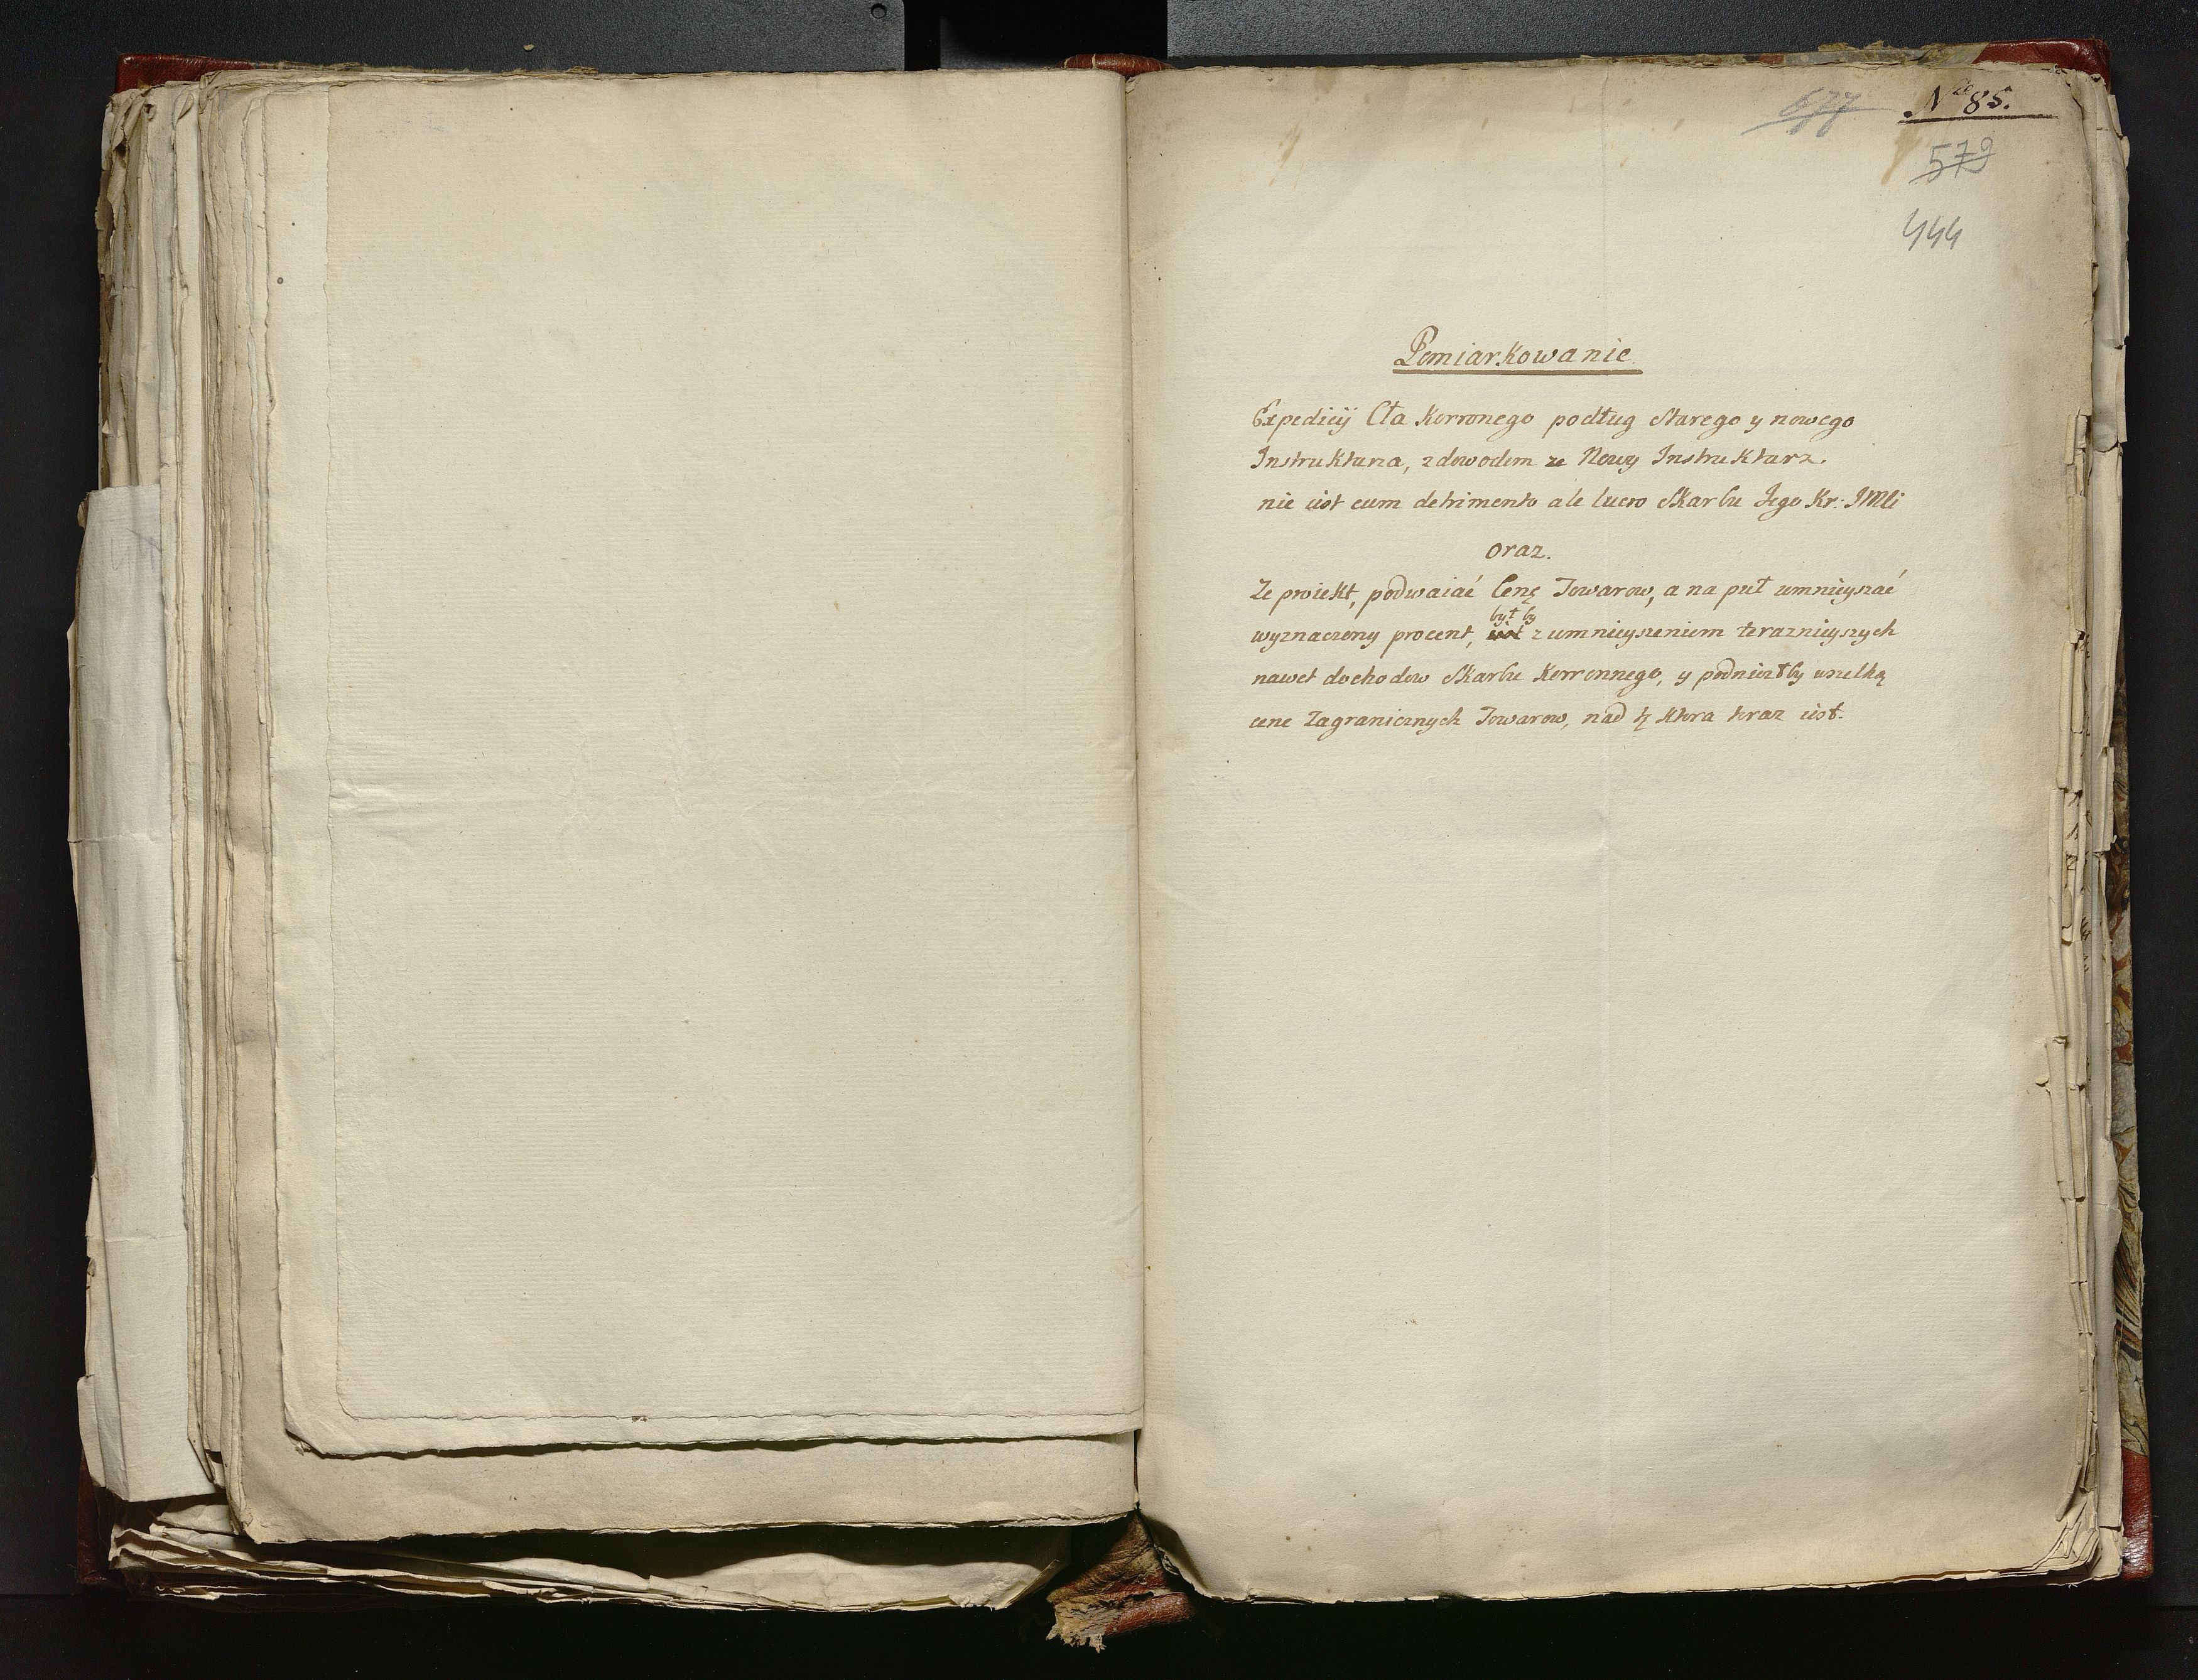 677 Nro 85.
579
444
Pomiarkowanie
Expedicij Cła Koronnego podług Starego y nowego
Instruktarza, z dowodem ze Nowy Instruktarz
nie iest cum detrimento ale lucro Skarbu Jego Kr: JMći
oraz.
Ze proiekt, podwaiać Cenę Towarow, a na puł umnieyszać
był by
wyznaczony procent, iest z umnieyszeniem teraznieyszych
nawet dochodow Skarbu Koronnego, y podniosłby wszelką
cene Zagranicznych Towarow, nad tę ktora teraz iest.